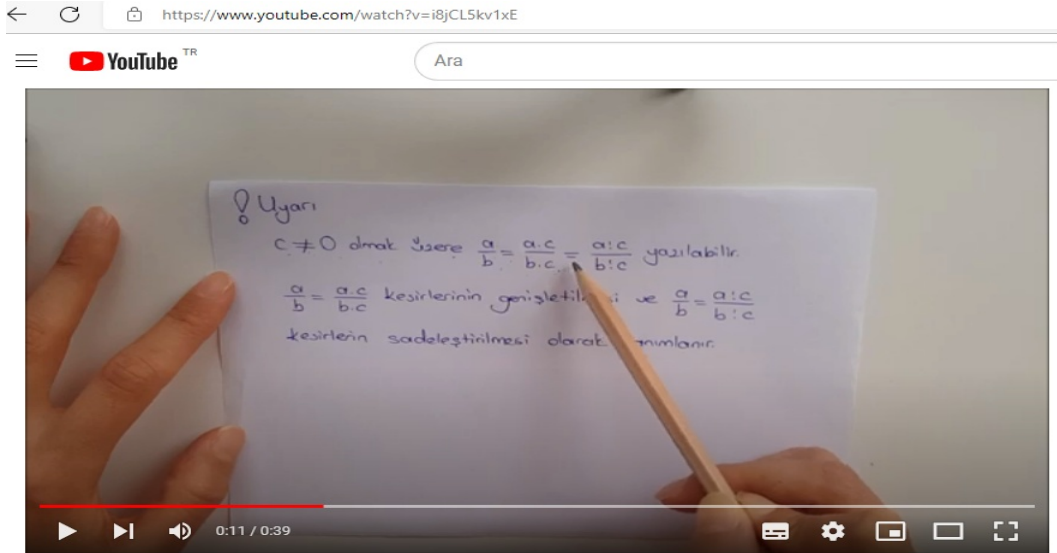 https://www.youtube.com/watch?v=i8jCL5kv1xE
YouTube TR
Ara
! Uyarı
c ≠ 0 olmak üzere a/b = a.c/b.c = a:c/b:c yazılabilir.
a/b = a.c/b.c kesirlerinin ve a/b = a:c/b:c
kesirlerin sadeleştirilmesi olarak
0:11 / 0:39